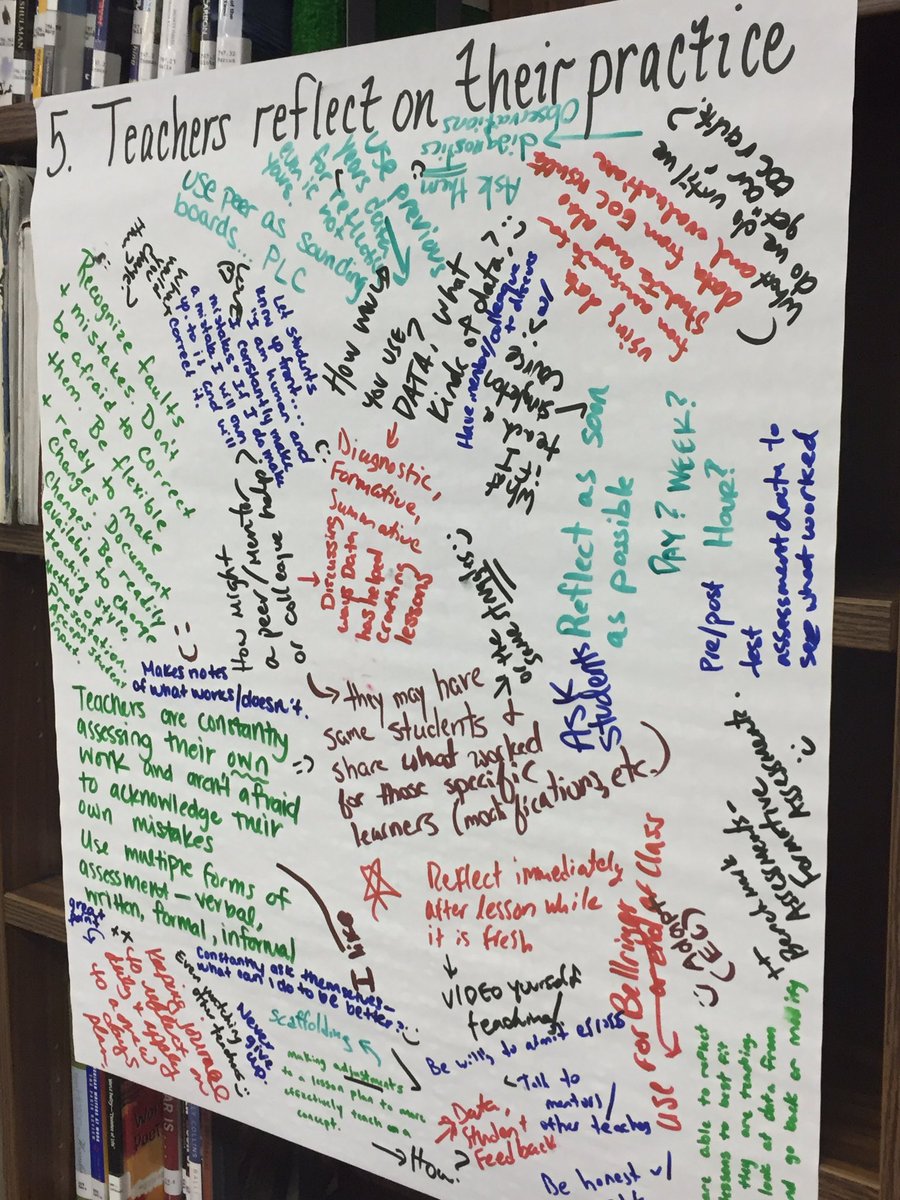 5. Teachers reflect on their practice
Observations
diagnostics
Ask them
Use previous
years data
for
reflection
even if
not
yours
use peer as sounding
boards... PLC
using data
from
EOC results
and evaluations
What
do we do
until we
get our
EOC results?
How may
you use
DATA? What
kinds of data?
Have mentor/colleague
What if
I teach a
singleton
course
Let students
know up front... and
I am human and
I constantly make
mistakes. If I do make
a mistake, I will own
up to it and will
correct it.
Recognize faults
+ mistakes. Don't
be afraid to correct
them. Be flexible
+ ready to make
changes. Document
changes. Be readily
available to change
teaching style.
How might
a peer/mentor
or colleague help?
Diagnostic,
Formative,
Summative
Discussing
ways Data
has helped
creating
lessons
Reflect as soon
as possible
DAY? WEEK?
Hour?
Pre/post
test
assessment data to
see what worked
or the
same struggles
Ask
students
Makes notes
of what works/doesn't.
they may have
same students +
share what worked
for those specific
learners (modifications, etc.)
Teachers are constantly
assessing their own
work and aren't afraid
to acknowledge their
own mistakes
Use multiple forms of
assessment — verbal,
written, formal, informal
I like
Benchmark
Assessments -
Formative
Assessments
Reflect immediately
after lesson while
it is fresh
VIDEO yourself
teaching/
Use for Bellringer
or end of class
Adapt
(EC)
great
point
Constantly ask themselves...
what can I do to be better?
Keeping a journal
to reflect on
Even watching
other teachers
Never
give
up
Scaffolding
making adjustments
to a lesson plan to more
effectively teach a
concept.
Be willing to admit errors
Talk to
mentors/
other teachers
Data,
Student
Feedback
How?
Be honest w/
are able to reflect
lessons to best fit
they are teaching.
look at data from
and go back or modify